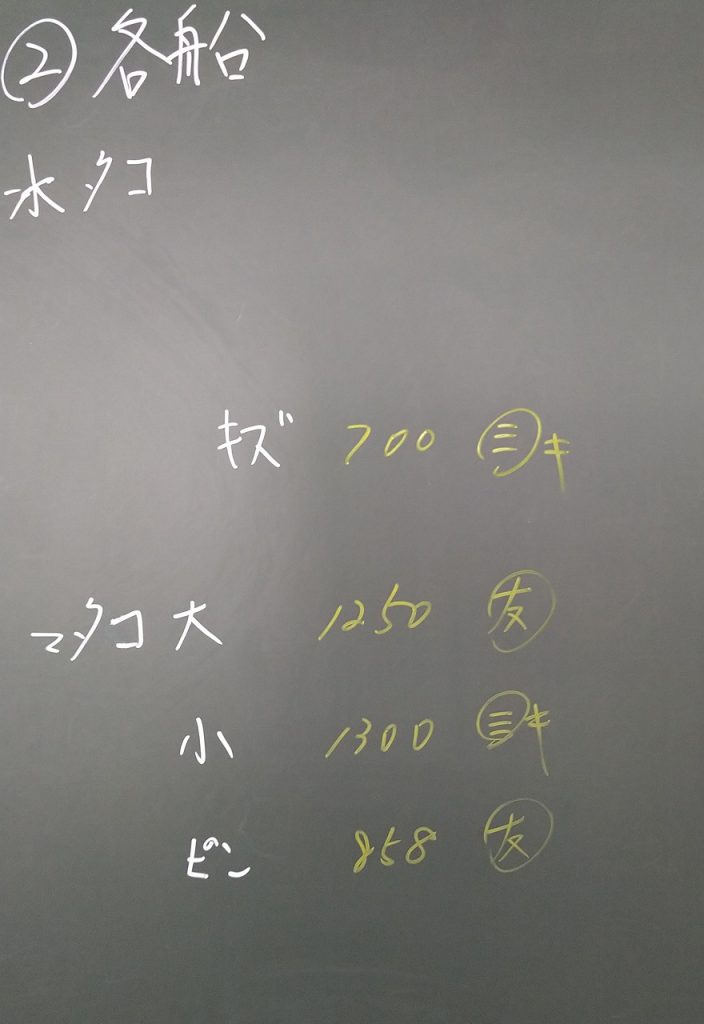 ② 各船
水タコ
キズ 700 ㊂キ
マタコ 大 1250 友
小 1300 ㊂キ
ピン 858 友